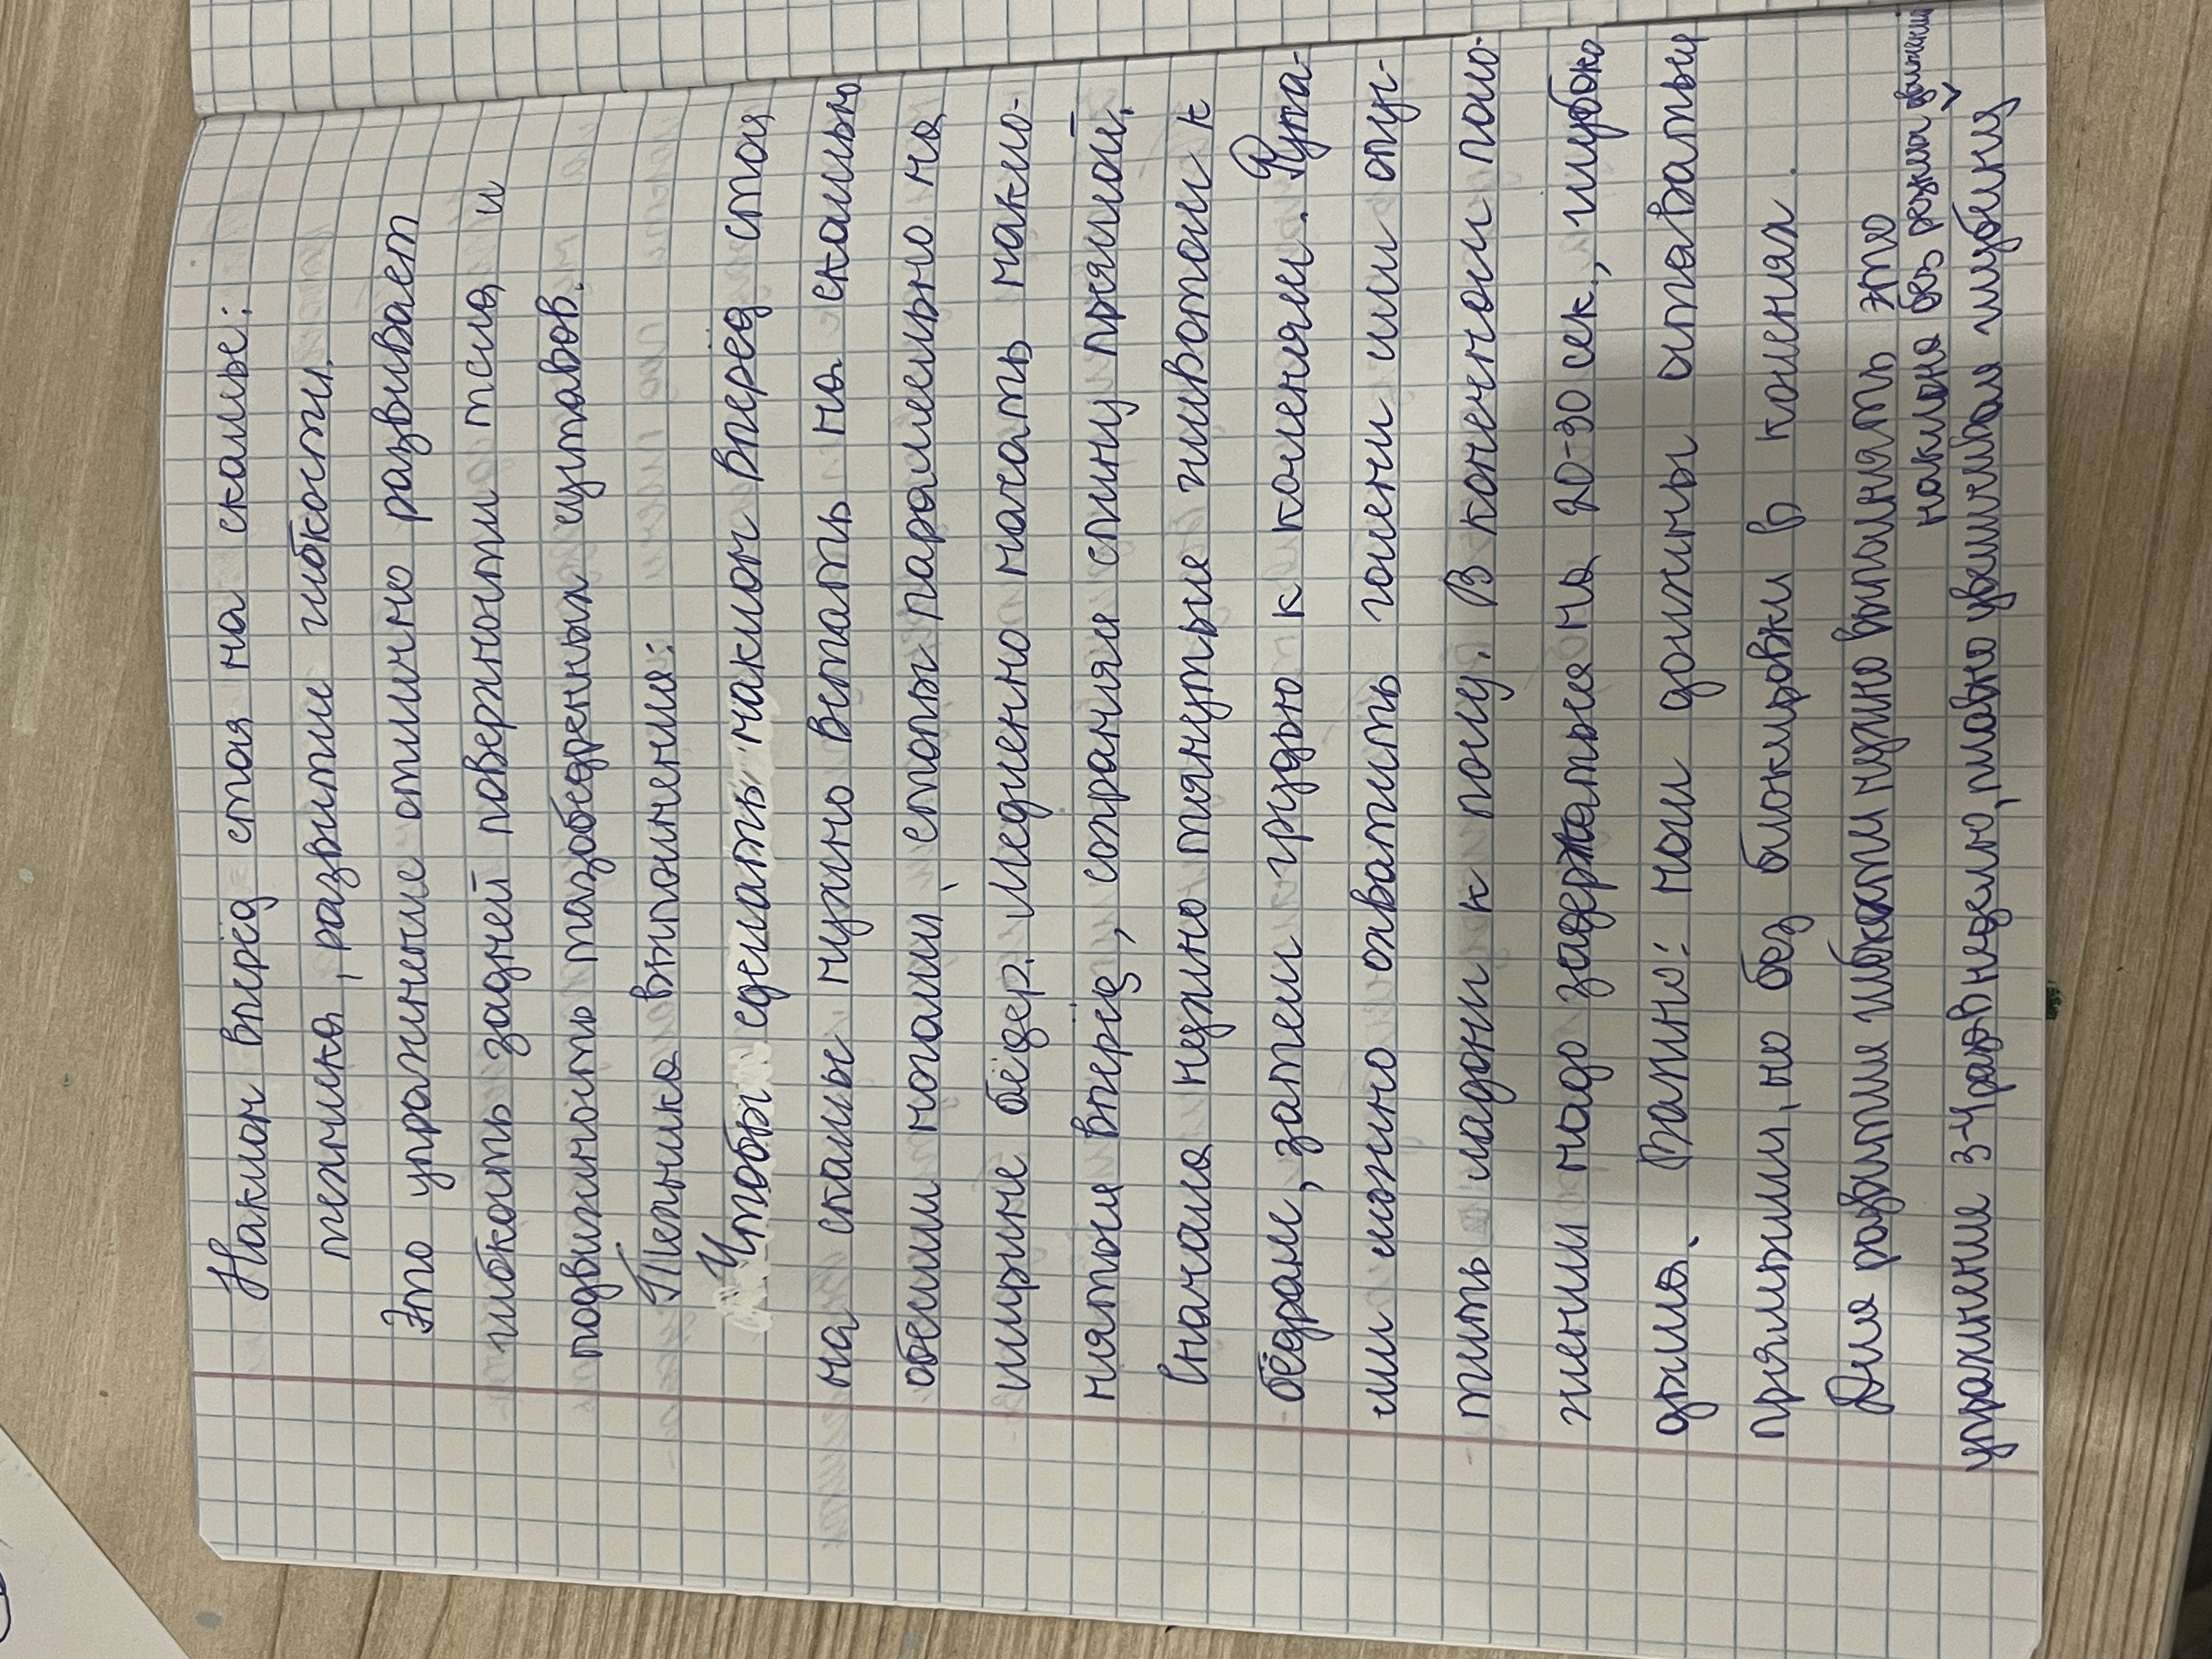 Наклон вперёд стоя на скамье:
техника, развитие гибкости.
Это упражнение отлично развивает
гибкость задней поверхности тела и
подвижность тазобедренных суставов.
Техника выполнения:
Чтобы сделать наклон вперед стоя
на скамье нужно встать на скамью
обеими ногами, стопы параллельно на
ширине бёдер. Медленно начать накло-
няться вперёд, сохраняя спину прямой.
Сначала нужно тянутые животом к
бёдрам, затем грудью к коленям. Рука-
ми можно охватить голени или опус-
тить ладони к полу. В конечном поло-
жении надо задержаться на 20-30 сек, глубоко
дыша. Важно: ноги должны оставаться
прямыми, но без блокировки в коленях.
Для развитие гибкости нужно выполнять это
наклона без резких движений
упражнение 3-4 раз в неделю, плавно увеличивая глубину